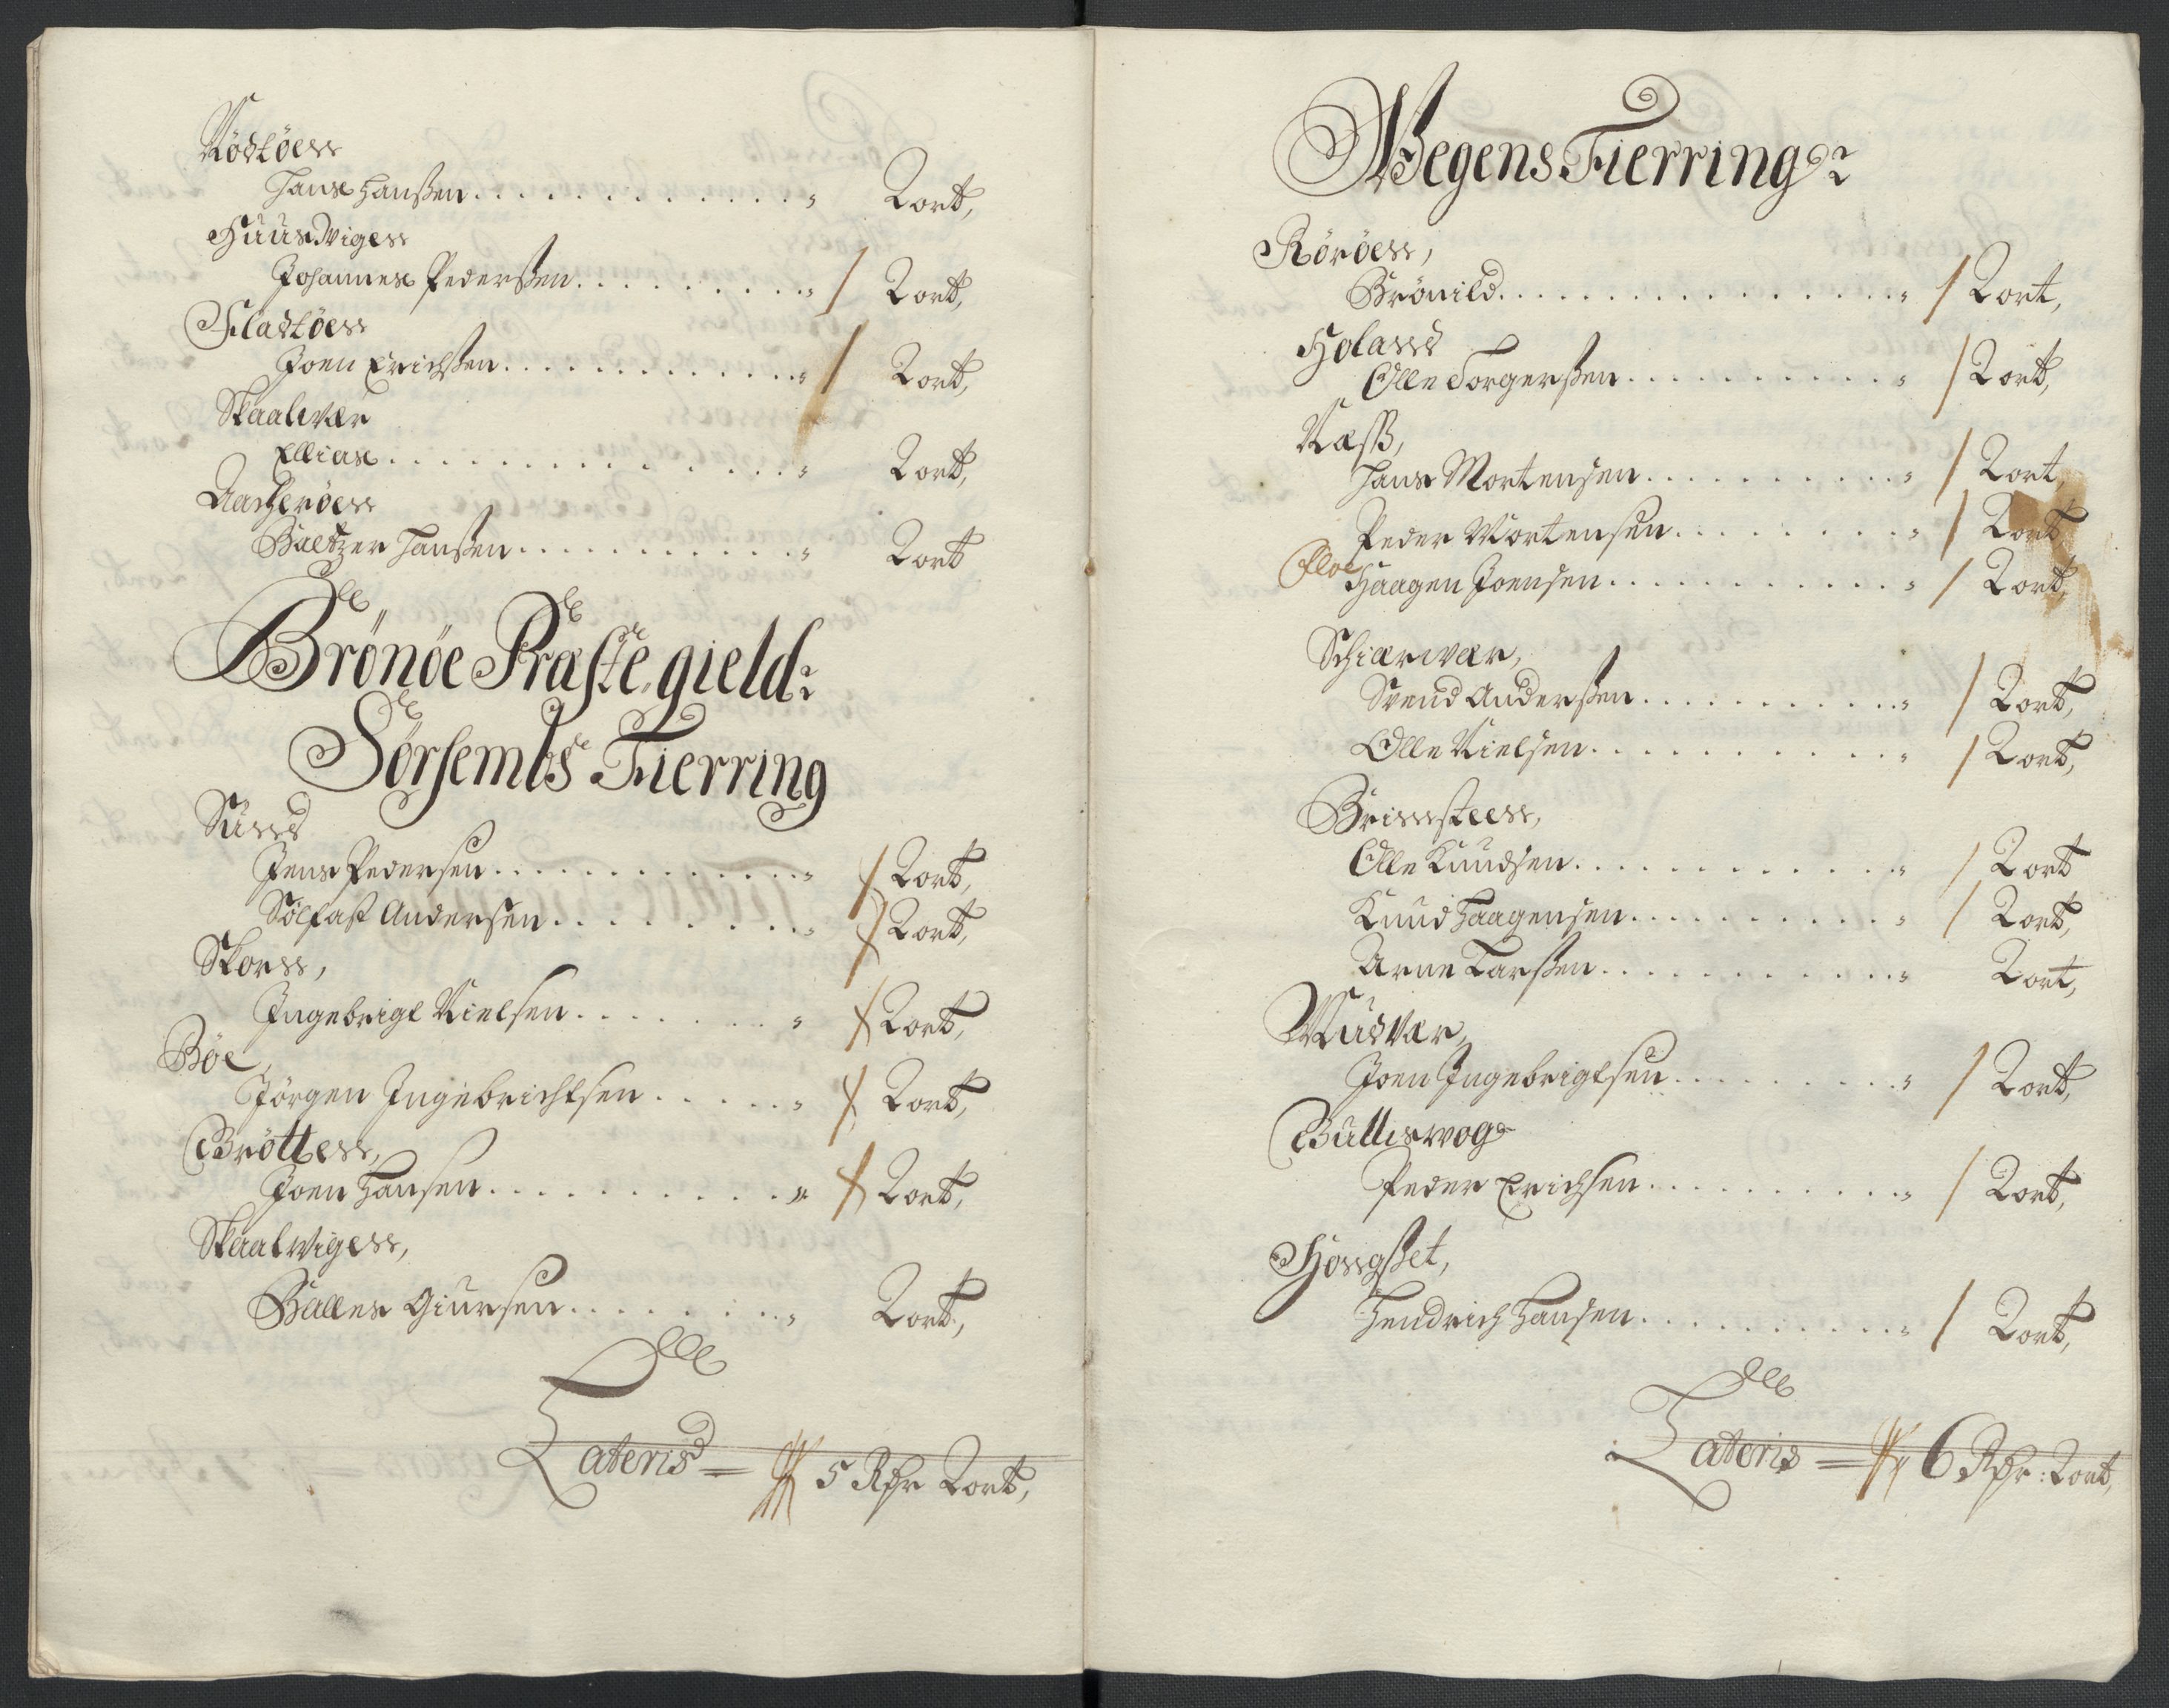 Rødtøen
Hans Hanßen . . . . . . . . . . . . . „ 2 ort,
Huusvigen
Johannes Pederßen . . . . . . . . . „ / 2 ort,
Fladtøen
Joen Erichßen . . . . . . . . . . . . „ / 2 ort,
Skaalvær
Ellias . . . . . . . . . . . . . . . „ 2 ort,
Aacherøen
Baltzer Hanßen . . . . . . . . . . . „ 2 ort
Brönöe Præste gield:
Sörsembs Fierring
Sund
Jens Pedersen . . . . . . . . . . . . „ / 2 ort,
Sölfast Andersen . . . . . . . . . „ / 2 ort,
Skorn,
Ingebrigt Nielsen . . . . . . . „ / 2 ort,
Böe,
Jörgen Ingebrichtsen . . . . . „ / 2 ort,
Brötten,
Joen Hansen . . . . . . . . . . . „ / 2 ort,
Skaalvigen,
Balles Giursen . . . . . . . . „ 2 ort,
Lateris = 5 Rdr 2 ort,
Wegens Fierring:
Röröen,
Brönild . . . . . . . . . . . . . . . . „ / 2 ort,
Holand
Olle Torgerßen . . . . . . . . . . „ / 2 ort,
Næss,
Hans Mortensen . . . . . . . . . . „ / 2 ort,
Peder Mortensen . . . . . . . . . „ / 2 ort
Floe Haagen Joensen . . . . . . . . . . . „ / 2 ort,
Schiærvær,
Svend Anderßen . . . . . . . . . . „ / 2 ort,
Olle Nielsen . . . . . . . . . . . „ / 2 ort,
Brinsteen,
Olle Knudsen . . . . . . . . . . . . „ / 2 ort
Knud Haagensen . . . . . . . . . . „ / 2 ort,
Arne Larßen . . . . . . . . . . . „ 2 ort,
Mudvær,
Joen Ingebrigtsen . . . . . . . . . „ / 2 ort,
Bulliswog
Peder Erichsen . . . . . . . . . . „ / 2 ort,
Hongßet,
Hendrich Hansen . . . . . . . . . . „ / 2 ort,
Lateris = 6 Rdr: 2 ort,